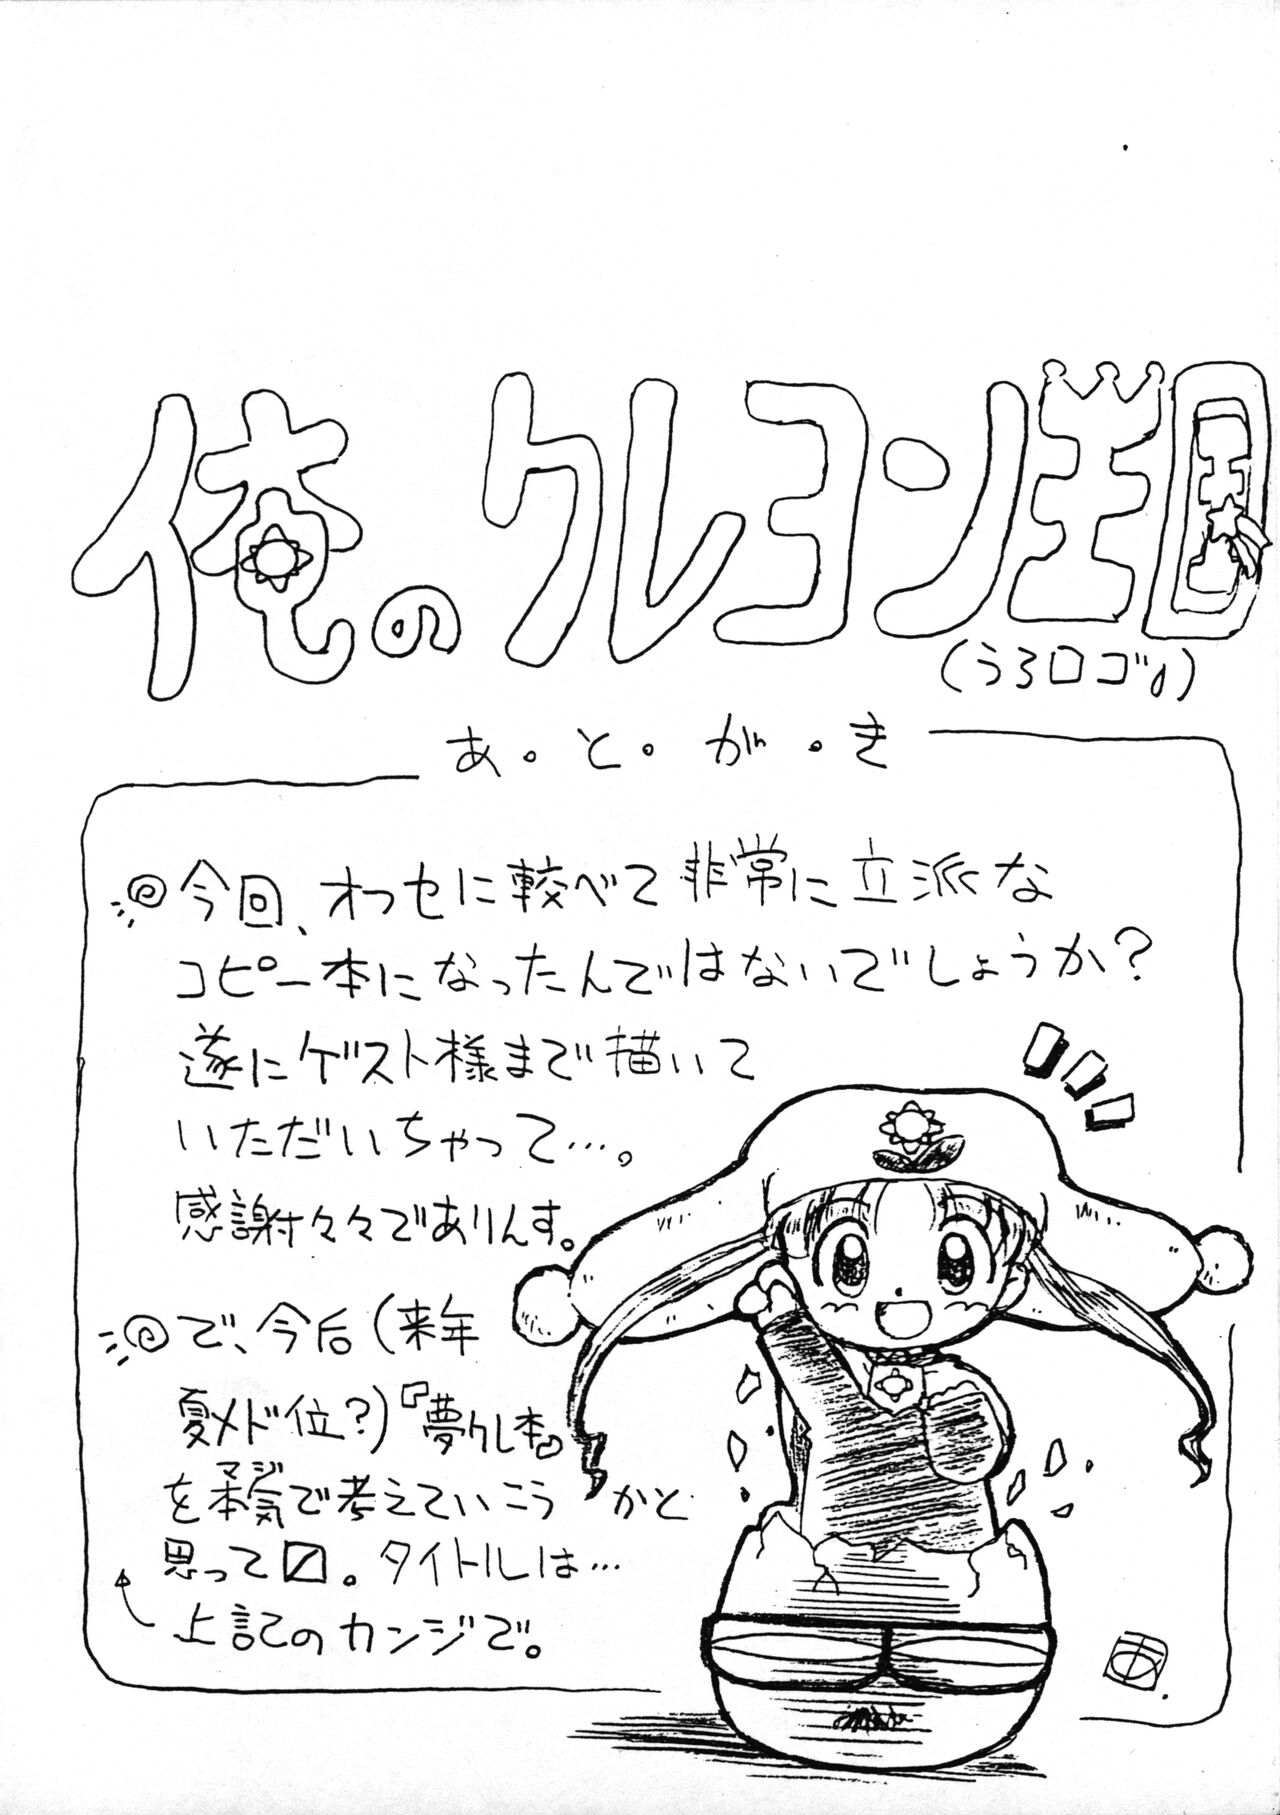 俺のクレヨン王国
(うろロゴ♪)
あ・と・が・き
今回、オフセに較べて非常に立派な
コピー本になったんではないでしょうか?
遂にゲスト様まで描いて
いただいちゃって…。
感謝々々でありんす。
で、今后(来年
夏メド位?)『夢クレ本』
マジ
を本気で考えていこうかと
思って〼。タイトルは…
上記のカンジで。
あ